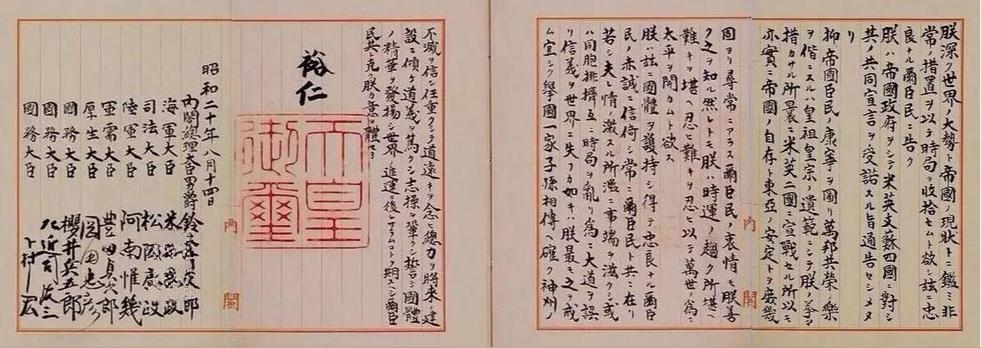 朕深ク世界ノ大勢ト帝國ノ現狀トニ鑑ミ非
常ノ措置ヲ以テ時局ヲ收拾セムト欲シ茲ニ忠
良ナル爾臣民ニ告ク
朕ハ帝國政府ヲシテ米英支蘇四國ニ對シ
其ノ共同宣言ヲ受諾スル旨通告セシメタ
リ
抑帝國臣民ノ康寧ヲ圖リ萬邦共榮ノ樂
ヲ偕ニスルハ皇祖皇宗ノ遺範ニシテ朕ノ拳々
措カサル所曩ニ米英二國ニ宣戰セル所以モ
亦實ニ帝國ノ自存ト東亞ノ安定トヲ庶幾
內閣
固ヨリ尋常ニアラス爾臣民ノ衷情モ朕善
ク之ヲ知ル然レトモ朕ハ時運ノ趨ク所堪ヘ
難キヲ堪ヘ忍ヒ難キヲ忍ヒ以テ萬世ノ爲ニ
太平ヲ開カムト欲ス
朕ハ茲ニ國體ヲ護持シ得テ忠良ナル爾臣
民ノ赤誠ニ信倚シ常ニ爾臣民ト共ニ在リ
若シ夫レ情ノ激スル所濫ニ事端ヲ滋クシ或
ハ同胞排擠互ニ時局ヲ亂リ爲ニ大道ヲ誤
リ信義ヲ世界ニ失フカ如キハ朕最モ之ヲ戒
ム宜シク擧國一家子孫相傳ヘ確ク神州ノ
不滅ヲ信シ任重クシテ道遠キヲ念ヒ總力ヲ將來ノ建
設ニ傾ケ道義ヲ篤クシ志操ヲ鞏クシ誓テ國體
ノ精華ヲ發揚シ世界ノ進運ニ後レサラムコトヲ期スヘシ爾臣
民其レ克ク朕カ意ヲ體セヨ
裕仁
天皇
御璽
內閣
昭和二十年八月十四日
內閣總理大臣男爵 鈴木貫太郎
海軍大臣 米內光政
司法大臣 松阪廣政
陸軍大臣 阿南惟幾
軍需大臣 豐田貞次郎
厚生大臣 岡田忠彥
國務大臣 櫻井兵五郎
國務大臣 左近司政三
國務大臣 下村宏